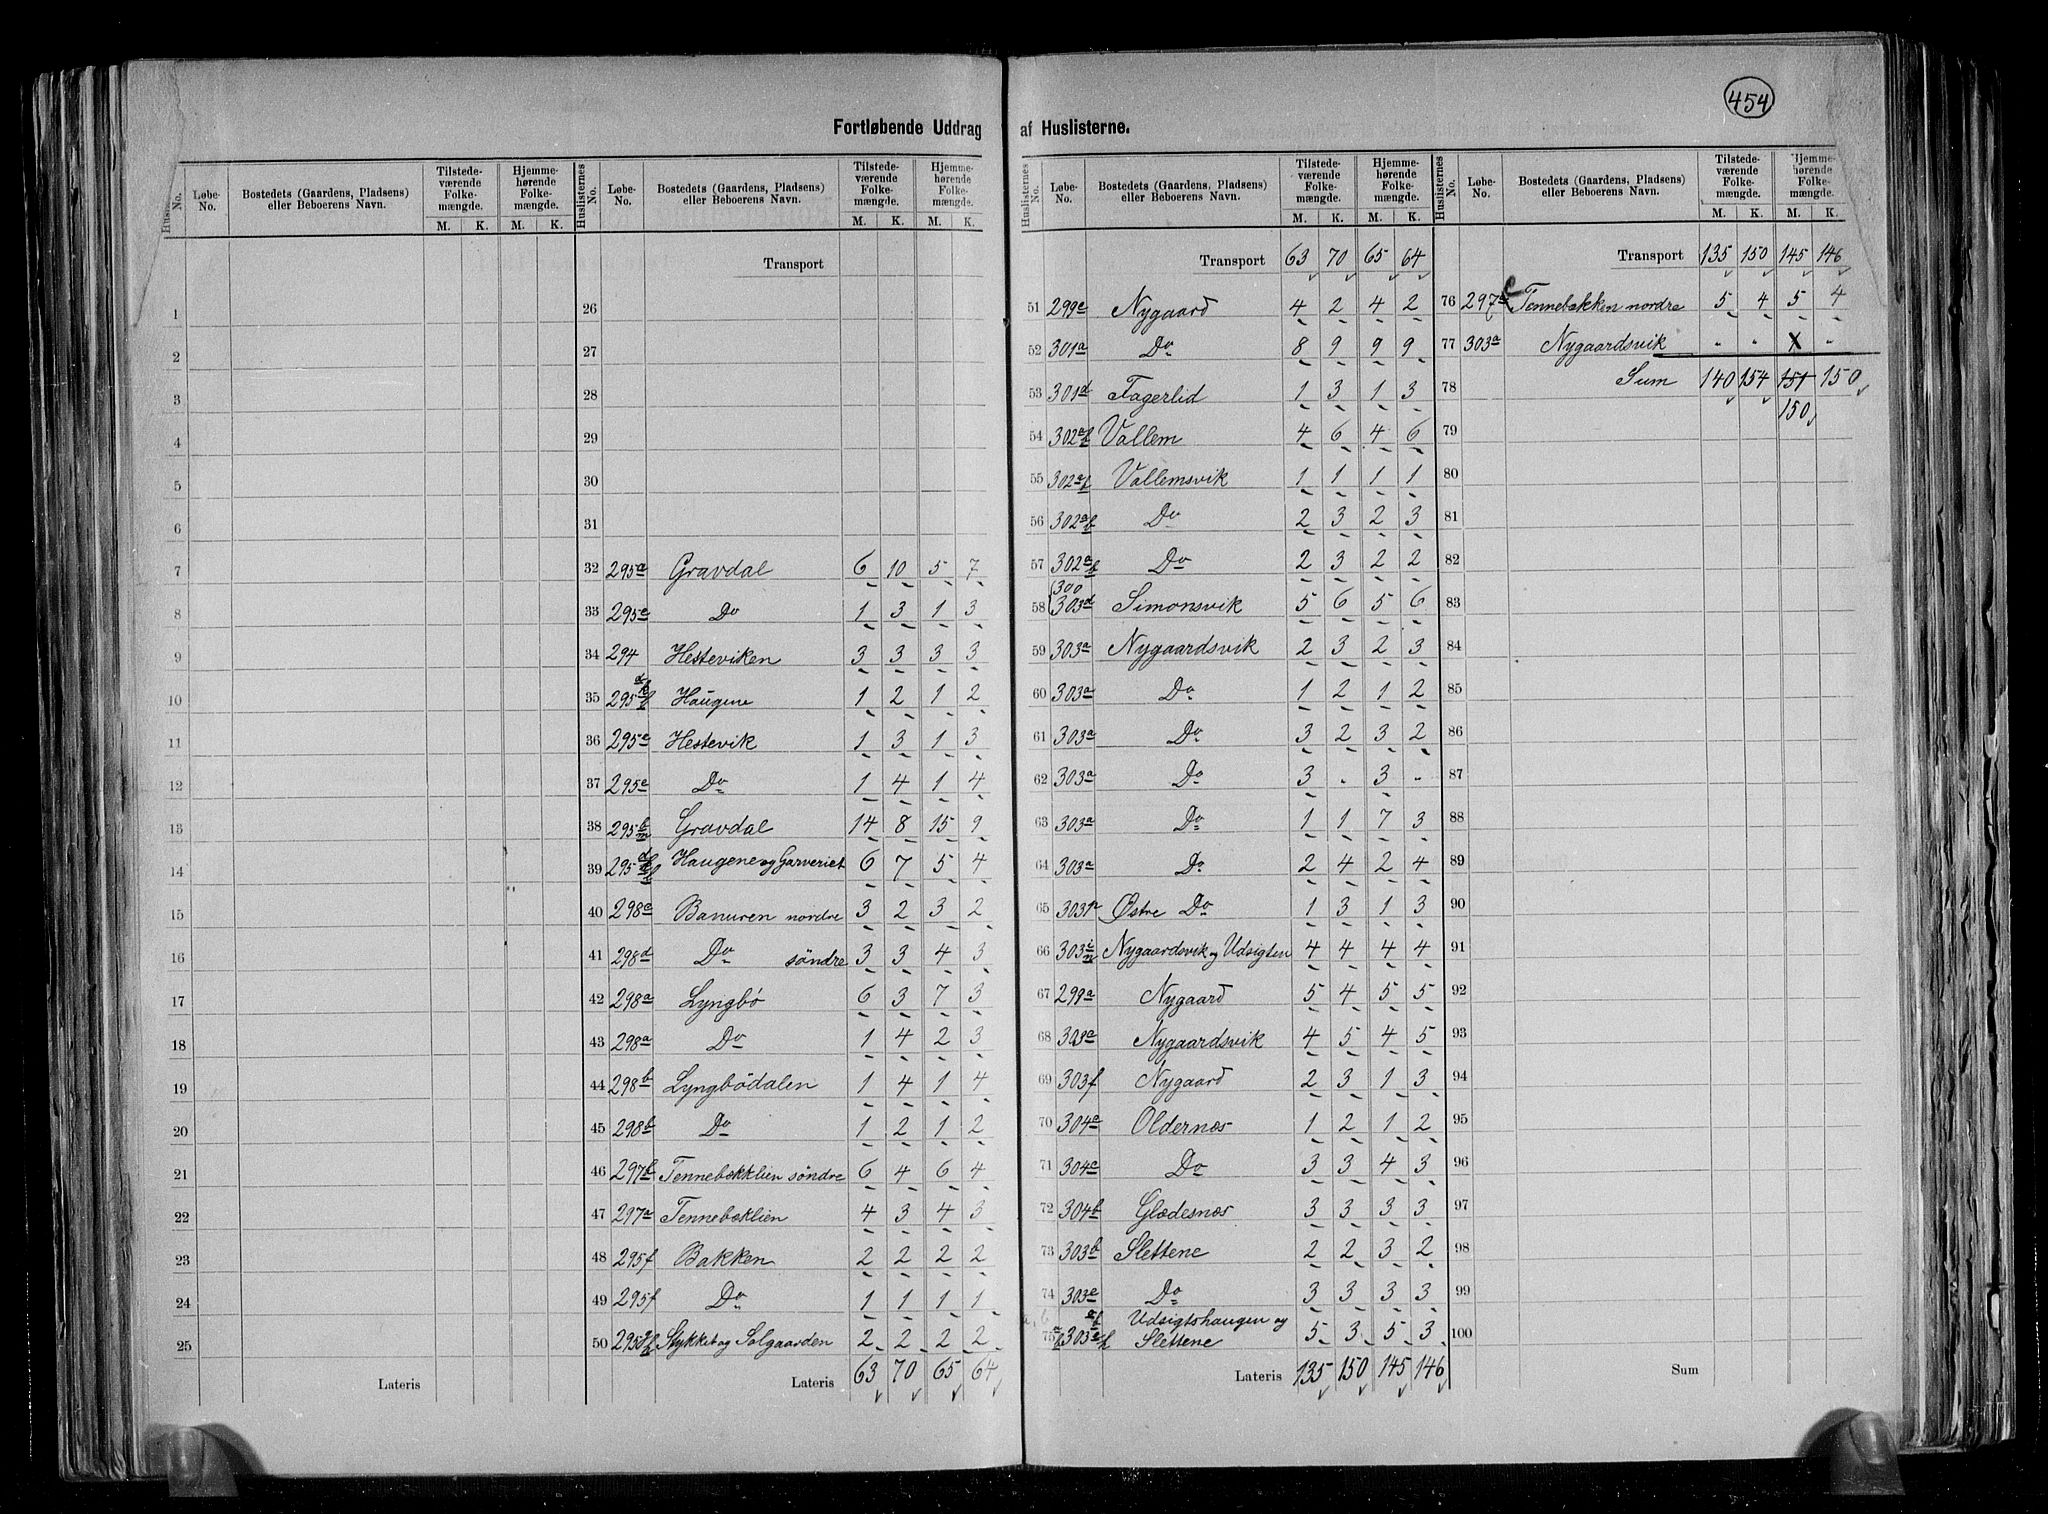 454
Fortløbende Uddrag af Huslisterne.
Løbe-No. Bostedets (Gaardens, Pladsens) eller Beboerens Navn. Tilstede-værende Folke-mængde. Hjemme-hørende Folke-mængde.
M. K. M. K.
1
2
3
4
5
6
7
8
9
10
11
12
13
14
15
16
17
18
19
20
21
22
23
24
25
Lateris
Huslisternes No. Løbe-No. Bostedets (Gaardens, Pladsens) eller Beboerens Navn. Tilstede-værende Folke-mængde. Hjemme-hørende Folke-mængde.
M. K. M. K.
Transport
26
27
28
29
30
31
32 295a Gravdal 6 10 5 7
33 295e Do 1 3 1 3
34 294 Hesteviken 3 3 3 3
35 295 Haugene 1 2 1 2
36 295e Hestevik 1 3 1 3
37 295e Do 1 4 1 4
38 295b m Gravdal 14 8 15 9
39 295 Haugene og Garveriet 6 7 5 4
40 298c Banuren nordre 3 2 3 2
41 298d Do söndre 3 3 4 3
42 298a Lyngbö 6 3 7 3
43 298a Do 1 4 2 3
44 298b Lyngbödalen 1 4 1 4
45 298b Do 1 2 1 2
46 297b Tennebækklien söndre 6 4 6 4
47 297a Tennebæklien 4 3 4 3
48 295f Bakken 2 2 2 2
49 295f Do 1 1 1 1
50 295 Stykket og Solgaarden 2 2 2 2
Lateris 63 70 65 64
Huslisternes No. Løbe-No. Bostedets (Gaardens, Pladsens) eller Beboerens Navn. Tilstede-værende Folke-mængde. Hjemme-hørende Folke-mængde.
M. K. M. K.
Transport 63 70 65 64
51 299c Nygaard 4 2 4 2
52 301a Do 8 9 9 9
53 301d Fagerlid 1 3 1 3
54 302a b Vallem 4 6 4 6
55 302a b Vallemsvik 1 1 1 1
56 302a b Do 2 3 2 3
57 302a b Do 2 3 2 2
58 300 303d Simonsvik 5 6 5 6
59 303a Nygaardsvik 2 3 2 3
60 303a Do 1 2 1 2
61 303a Do 3 2 3 2
62 303a Do 3 - 3 -
63 303a Do 1 1 7 3
64 303a Do 2 4 2 4
65 303 Østre Do 1 3 1 3
66 303 Nygaardsvik og Udsigten 4 4 4 4
67 299a Nygaard 5 4 5 5
68 303a Nygaardsvik 4 5 4 5
69 303f Nygaard 2 3 1 3
70 304a Oldernæs 1 2 1 2
71 304a Do 3 3 4 3
72 304b Glædesnæs 3 3 3 3
73 303b Slettene 2 2 3 2
74 303e Do 3 3 3 3
75 303 Udsigtshaugen og Slettene 5 3 5 3
Lateris 135 150 145 146
Huslisternes No. Løbe-No. Bostedets (Gaardens, Pladsens) eller Beboerens Navn. Tilstede-værende Folke-mængde. Hjemme-hørende Folke-mængde.
M. K. M. K.
Transport 135 150 145 146
76 297c Tennebækken nordre 5 4 5 4
77 303a Nygaardsvik " " X "
78 Sum 140 154 151 150
150
79
80
81
82
83
84
85
86
87
88
89
90
91
92
93
94
95
96
97
98
99
100
Sum